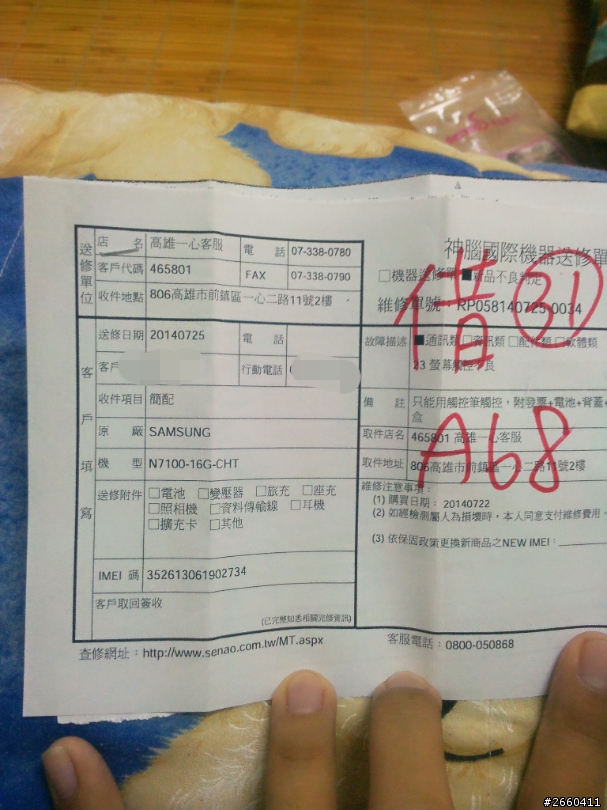 神腦國際機器送修單
送修單位
店名 高雄一心客服 電話 07-338-0780
客戶代碼 465801 FAX 07-338-0790
收件地點 806高雄市前鎮區一心二路11號2樓
□機器送修單 ■新品不良判定
維修單號: RP058140725-0034
借 51
客戶填寫
送修日期 20140725 電話
客戶 行動電話
收件項目 簡配
原廠 SAMSUNG
機型 N7100-16G-CHT
送修附件 □電池 □變壓器 □旅充 □座充
□照相機 □資料傳輸線 □耳機
□擴充卡 □其他
IMEI 碼 352613061902734
客戶取回簽收
(已完整知悉相關完修資訊)
故障描述 ■通訊類 □資訊類 □配件類 □軟體類
23 螢幕觸控不良
備註 只能用觸控筆觸控，附發票+電池+背蓋+
盒
A68
取件店名 465801 高雄一心客服
取件地址 806高雄市前鎮區一心二路11號2樓
維修注意事項:
(1) 購買日期: 20140722
(2) 如經檢測屬人為損壞時，本人同意支付維修費用
(3) 依保固政策更換新商品之NEW IMEI:
查修網址: http://www.senao.com.tw/MT.aspx
客服電話: 0800-050868
#2660411